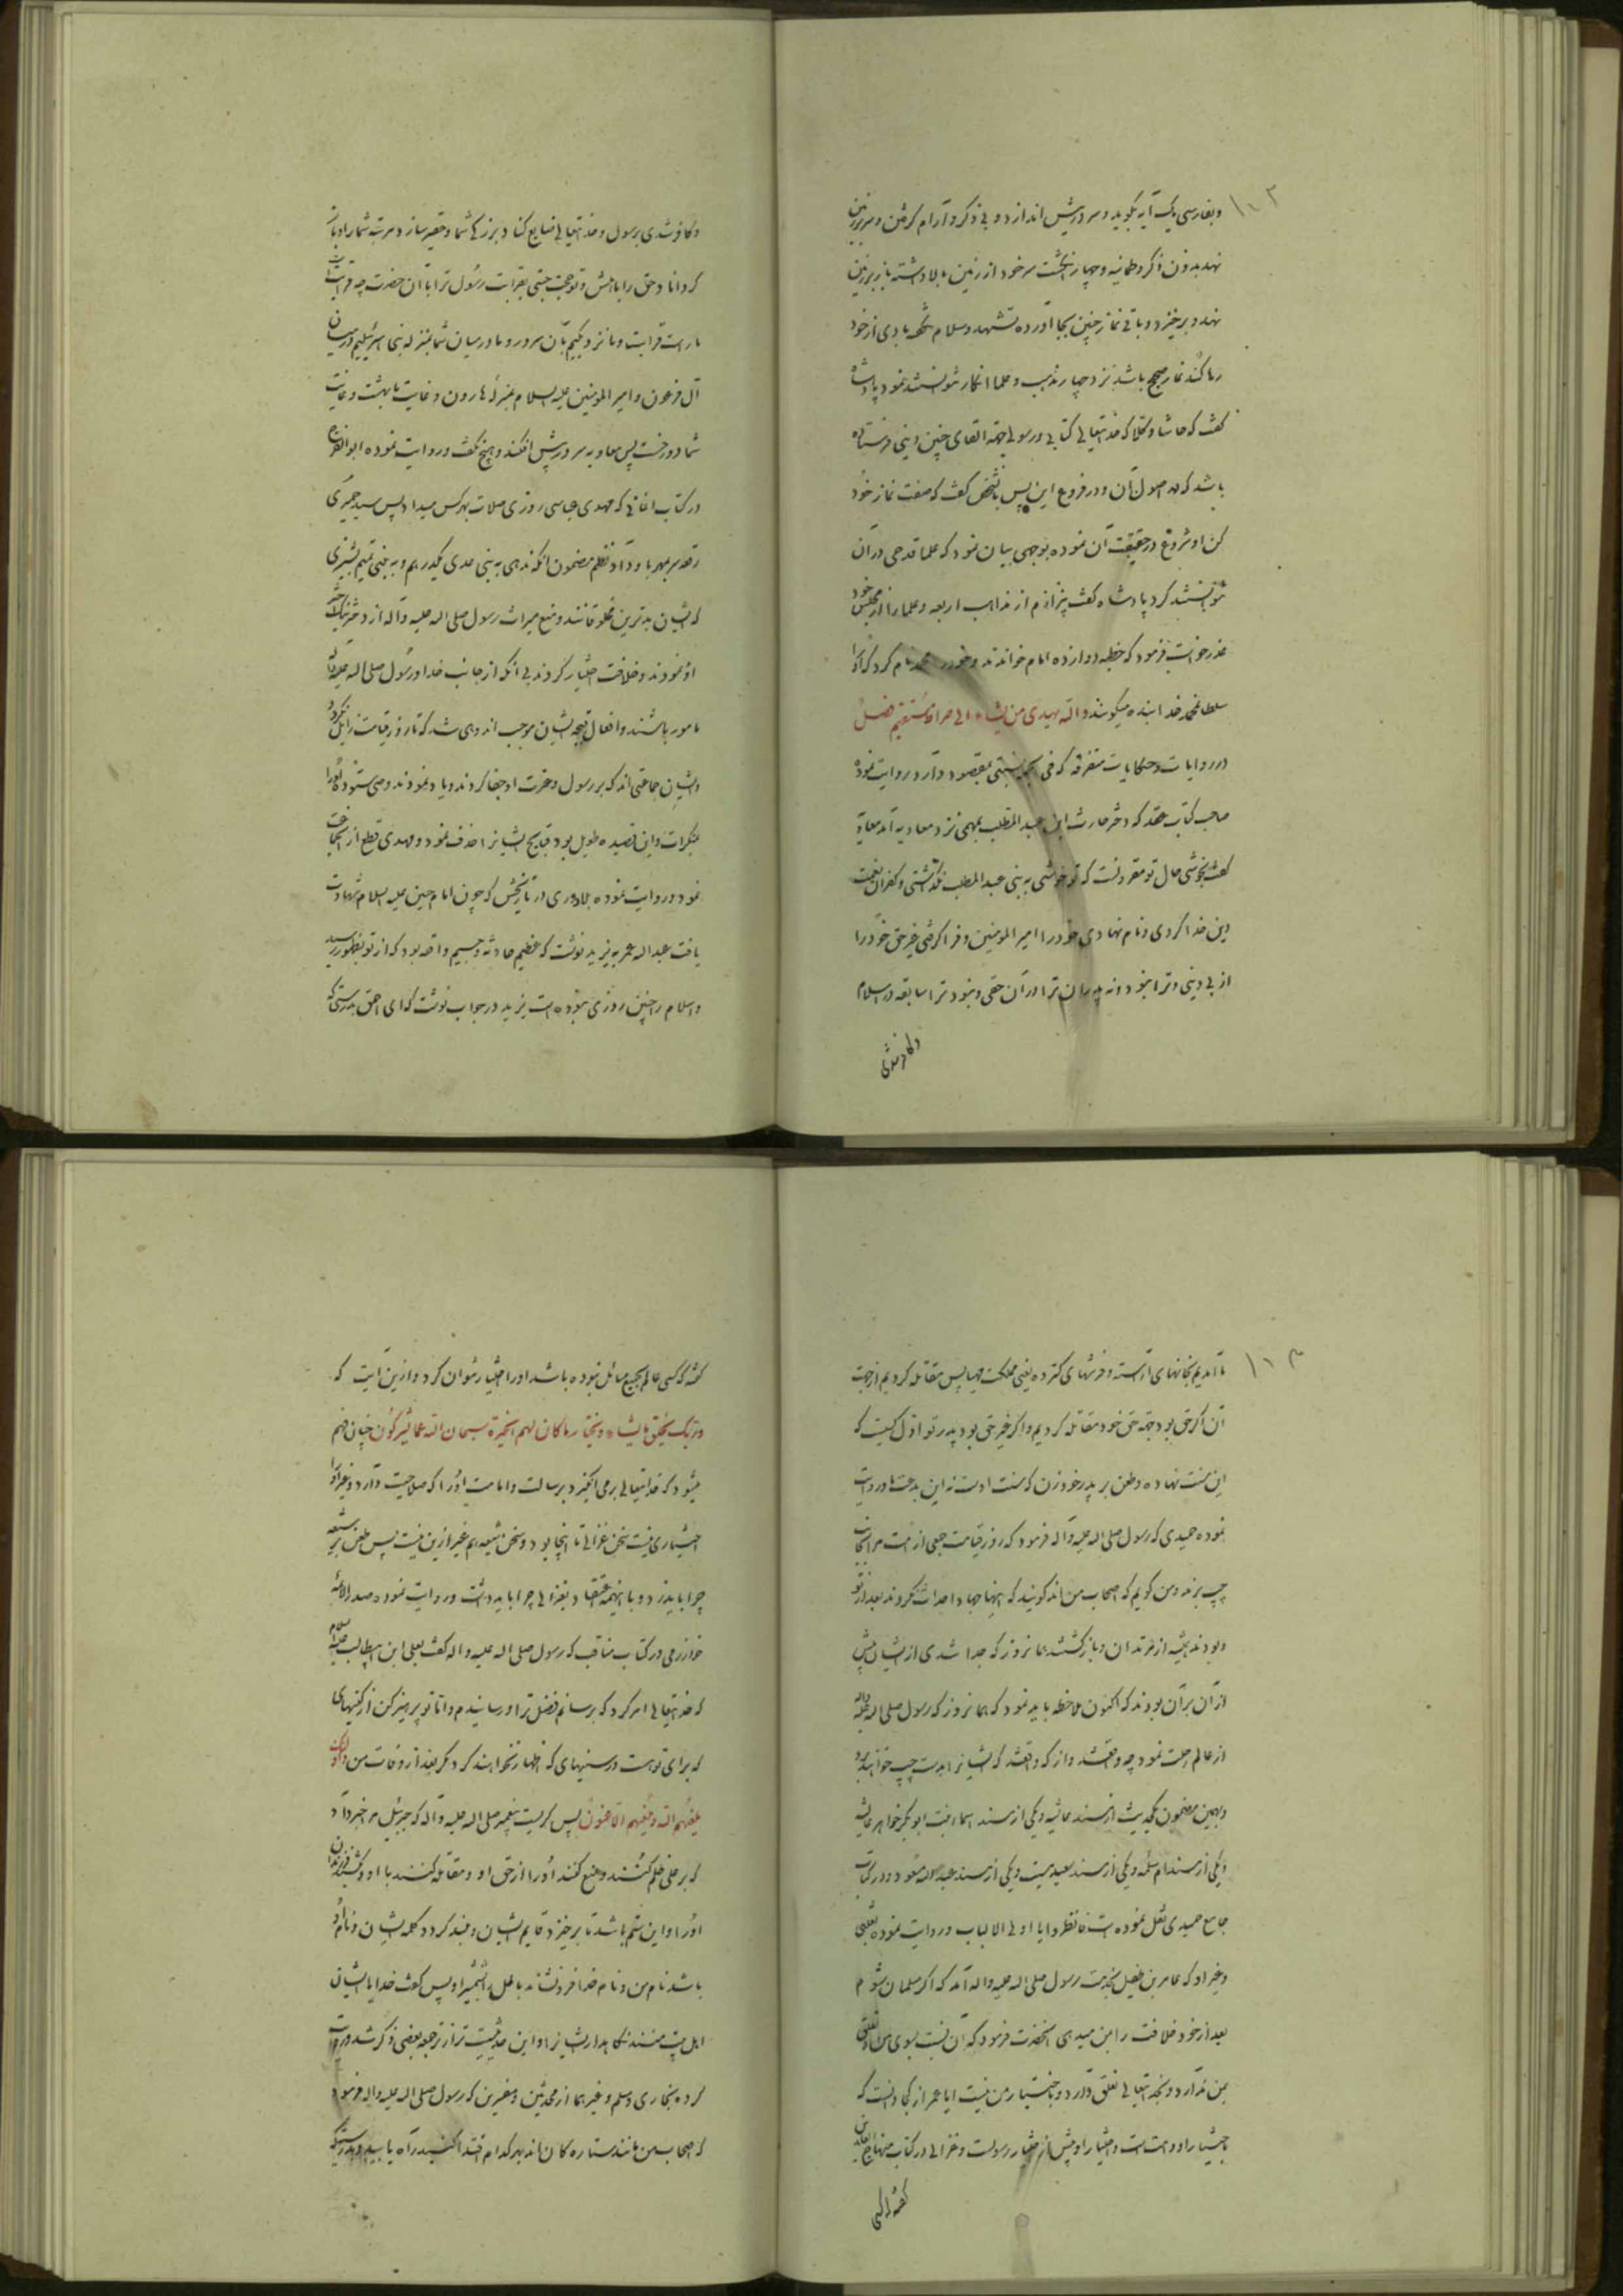 ۱۰۲
و بفارسی یک آیه بگوید و سر در پیش اندازد و بی ذکر و آرام گرفتن و سر بر زمین
نهد بدون ذکر و طمانیه و چهار انگشت سر خود از زمین بالا داشته باز بر زمین
نهد و برخیزد و باقی نماز چنین بجا آورده تشهد و سلام نگفته بادی از خود
رها کند نماز صحیح باشد نزد چهار مذهب و علما انکار نتوانستند نمود پادشاه
گفت که حاشا و کلا که خدایتعالی کتابی و رسولی جهة القای چنین دینی فرستاده
باشد که در اصول آن و در فروع این پس با شخص گفت که صفت نماز خود
کن او شروع در حقیقت آن نموده بوجهی بیان نمود که علما قدحی در آن
نتوانستند کرد پادشاه گفت بیزارم از مذاهب اربعه و علما را از مجلس خود
عذر خواست فرمود که خطبه دوازده امام خواندند و خود را محمد نام کرد که او را
سلطان محمد خدابنده میگویند والله یهدی من یشاء الی صراط مستقیم فصل
در روایات و حکایات متفرقه که فی الجمله نسبتی بمقصود دارد روایت نموده
صاحب کتاب عقد که دختر حارث ابن عبد المطلب بمهمی نزد معاویه آمد معاویه
گفت بخوشی حال تو مقرونست که تو خوشی به بنی عبد المطلب نگذاشتی و کفران نعمت
دین خدا کردی و نام نهادی خود را امیر المومنین و فرا گرفتی غیر حق خود را
از بی دینی و ترا نبود و نه پدران ترا در آن حقی و نبود ترا سابقه در اسلام
و کافر شدی
و کافر شدی برسول و خدایتعالی ضایع کناد بزرگی شما و حقیر سازد مرتبه شما را و باز
گرداناد حق را باهلش و تو حجت جستی بقرابت رسول ترا با آن حضرت چه قرابت است
ما راست قرابت و ما نزدیکیم بآن سرور و ما در میان شما بمنزله بنی اسرئیلیم در میان
آل فرعون و امیر المومنین علیه السلام بمنزله هارون و غایت ما بهشت و غایت
شما دوزخست پس معاویه سر در پیش افکند و هیچ نگفت و روایت نموده ابو الفرج
در کتاب اغانی که مهدی عباسی روزی صلات بهرکس میداد پس سید حمیری
رقعه سربمهر باو داد نظم مضمون آنکه ندهی به بنی عدی یکدرهم و به بنی تمیم پشیزی
که ایشان بدترین مخلوقانند و منع میراث رسول صلی الله علیه و آله از دختر نیک اختر
او نمودند و خلافت اختیار کردند بی آنکه از جانب خدا و رسول صلی الله علیه و آله
مامور باشند و افعال قبیحه ایشان موجب اندوهی شد که تا روز قیامت زایل نگردد
و ایشان جماعتی اند که بر رسول و عترت او جفا کردند و یاد نمودند وصی ستوده او را
بمنکرات و این قصیده طویل بود قبایح ایشانرا حذف نمود و مهدی قطع از انجماعت
نمود و روایت نموده بلادری در تاریخش که چون امام حسین علیه السلام شهادت
یافت عبد الله عمر به یزید نوشت که عظیم حادثه و جسیم واقعه بود که از تو بظهور رسید
و اسلام را چنین روزی نبوده است یزید در جواب نوشت که ای احمق بدرستی که
۱۰۳
ما آمدیم بخانهای آراسته و فرشهای گسترده یعنی مملکت مهیا پس مقاتله کردیم از جهت
آن اگر حق بود جهة حق خود مقاتله کردیم و اگر غیر حق بود پدر تو اول کسیست که
این سنت نهاده و طعن بر پدر خود زن که سنت اوست نه این بدعت ما و روایت
نموده حمیدی که رسول صلی الله علیه و آله فرمود که روز قیامت جمعی از امت مرا بجانب
چپ برند و من گویم که اصحاب من اند گویند که اینها چها و احداث نکردند بعد از تو
و بودند همیشه از مرتدان و بازگشتند همانروز که جدا شدی از ایشان پیش
از آن بر آن بودند که اکنون ملاحظه باید نمود که همانروز که رسول صلی الله علیه و آله
از عالم رحلت نمود چه واقع شد و از که واقع شد که ایشانرا بدست چپ خواهند برد
و بهمین مضمون یکحدیث از مسند عایشه و یکی از مسند اسماء بنت ابو بکر خواهر عایشه
و یکی از مسند ام سلمه و یکی از مسند سعید مسیب و یکی از مسند عبد الله مسعود و در کتاب
جامع حمیدی نقل نموده است فانظروا یا اولی الالباب و روایت نموده ثعلبی
و غیر او که عامر بن طفیل بخدمت رسول صلی الله علیه و آله آمد که اگر مسلمان شوم
بعد از خود خلافت را بمن میدهی آنحضرت فرمود که آن نیست بسوی من و تعلق
بمن ندارد و بخدایتعالی تعلق دارد و باختیار من نیست ایا عمر از کجا دانست که
باختیار او و امت است و اختیار او پیش از اختیار رسولست و غزالی در کتاب منهاج العابدین
گفته که کسی
گفته که کسی عالم بجمیع مسائل نبوده باشد او را اختیار نتوان کرد و ازین آیت که
و ربک یخلق ما یشاء و یختار ما کان لهم الخیرة سبحان الله عما یشرکون چنان فهم
میشود که خدایتعالی برمی انگیزد برسالت و امامت او را که صلاحیت دارد و غیر او را
اختیاری نیست سخن غزالی تا اینجا بود و سخن شیعه هم غیر ازین نیست پس طعن بر شیعه
چرا باید زد و با اینهمه اعتقاد بغزالی چرا باید داشت و روایت نموده صدر الائمه
خوارزمی در کتاب مناقب که رسول صلی الله علیه و اله گفت بعلی ابن ابیطالب علیه السلام
که خدایتعالی امر کرد که برسانم فضل ترا و رسانیدم و اما تو پرهیز کن از کینهای
که برای تو هست در سینهای که اظهار نخواهند کرد مگر بعد از وفات من اولئک
یلعنهم الله و یلعنهم اللاعنون پس گریست پیغمبر صلی الله علیه و آله که جبرئیل مرا خبر داد
که بر علی ظلم کنند و منع کنند او را از حق او و مقاتله کنند با او و کشند فرزندان
او را و این ستم باشد تا برخیزد قایم ایشان و بلند گردد کلمه ایشان و نام او
باشد نام من و نام خدا فرو نشاند باطل را بشمشیر او پس گفت خدایا ایشان
اهل بیت منند نگاهدار ایشانرا و این حدیثیست ترا از ترجمه بعضی ذکر شد و روایت
کرده بخاری و مسلم و غیر هما از محدثین و مفسرین که رسول صلی الله علیه و اله فرمود
که اصحاب من مانند ستاره کان اند بهر کدام اقتدا کنید راه یابید و بدرستیکه